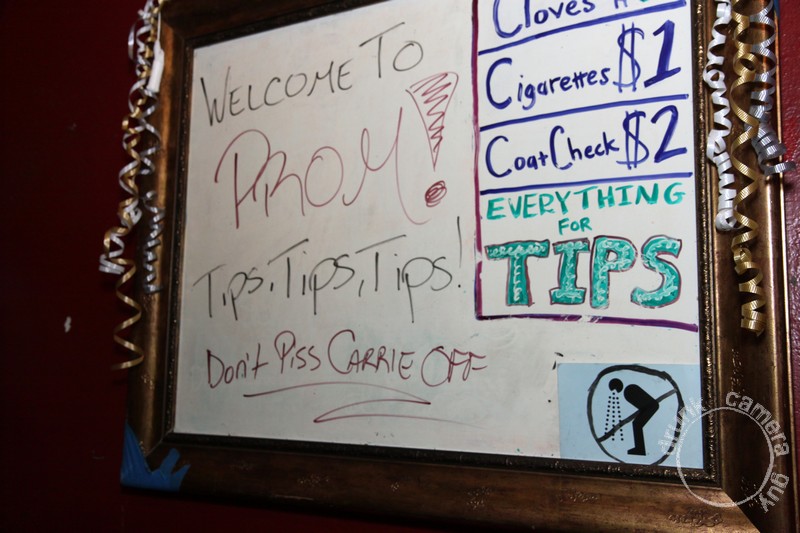 WELCOME TO
PROM!
Tips, Tips, Tips!
Don't Piss CARRIE OFF
Cloves
Cigarettes $1
Coat Check $2
EVERYTHING
FOR
TIPS
drunk camera guy